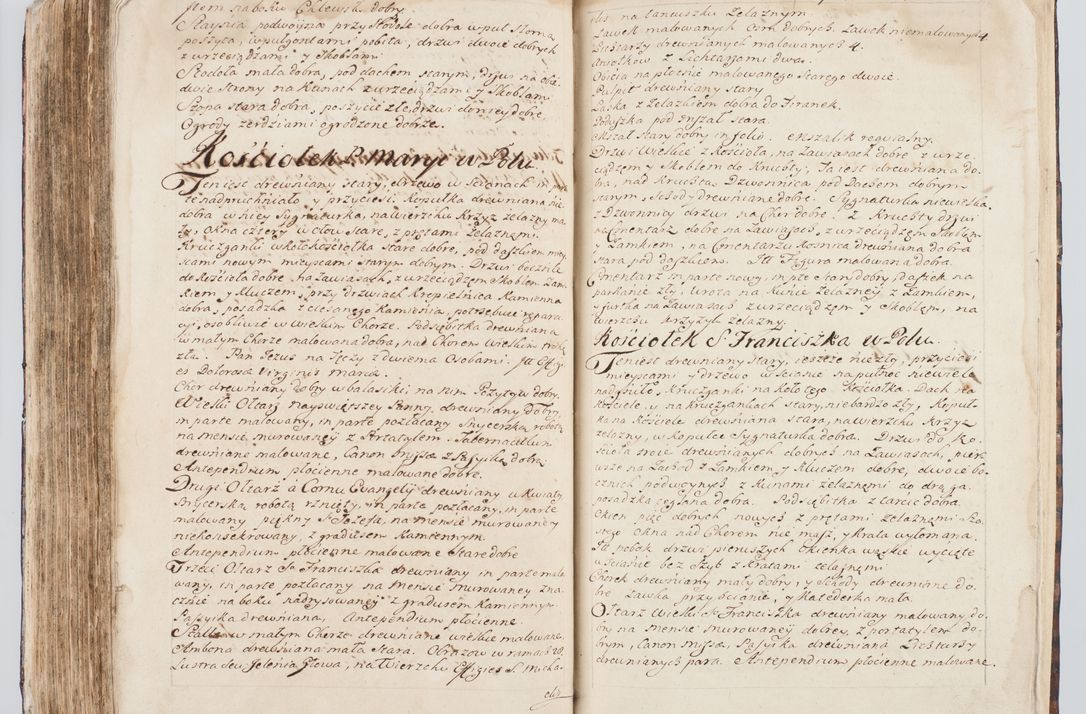 stem na boku Chlewek dobry.
Staynia podwoyna przy Stodole dobra wpuł słomą
poszyta, wpuł gontami pobita, drzwi dwoie dobrych
z wrzeciądzami y Skoblami
Stodoła mała dobra, pod dachem starym, drzwi na obie
dwie Strony na Kunach z wrzeciądzami y Skoblami
Szopa stara dobra, poszycie złe, drzwi do niey dobre
Ogrody żerdziami ogrodzone dobrze.
Kościołek P. Maryi w Polu
Ten iest drewniany stary, drzewo w scianach in parte
nadpruchniało y przyciesi. Kopułka drewniana nie
dobra w niey Sygnaturka, na wierzchu Krzyż żelazny ma
Okna cztery w ołow Stare, z prętami żelaznemi.
Kruczganki wkoło kościołka stare dobre, pod daszkiem miey
scami nowym mieyscami starym dobrym. Drzwi boczne
do Kościoła dobre na Zawiasach, z wrzeciądzem Skoblem Zam
kiem y Kluczem, przy drzwiach Kropielnica Kamienna
dobra, posadzka z ciosanego Kamienia, potrzebuie repara
cyi, osobliwie w wielkim Chorze. Podsiębitka drewniana
w małym Chorze malowana dobra, nad Chorem Wielkim trochę
zła. Pan Jezus na Tęczy z dwiema Osobami. Itt Effigi
es Dolorosa Virginis Mariæ.
Chor drewniany dobry w balasiki, na nim Pozytyw dobry.
Wielki Ołtarz Nayswiętszey Panny, drewniany dobry,
in parte malowany, in parte pozłacany Snycerską robotą
na mensie murowaney z Portatylem. Tabernaculum
drewniane malowane, Canon Missæ z Passyiką dobrą
Antependium płocienne malowane dobre.
Drugi Ołtarz à Cornu Evangelij drewniany w Kwiaty
Snycerską robotą rznięty, in parte pozłacany, in parte
malowany piękny S. Jozefa, na mensie murowaney
niekonsekrowany, z gradusem Kamiennym.
Antependium płocienne malowane Stare dobre
Trzeci Ołtarz S. Franciszka drewniany in parte malo
wany, in parte pozłacany na mensie murowaney zna
cznie na boku nadrysowaney z gradusem Kamiennym
Passyika drewniana, Antependium płocienne.
Stalla w małym Chorze drewniane wielkie malowane.
Ambona drewniana mała stara. Obrazow w ramach 20.
Lustra dwu Jelenia Głowa, na Wierzchu Effigies S. Micha-
elis
elis na łancuszku Żelaznym.
Ławek malowanych ośm dobrych. Ławek niemalowanych 4
Lichtarzy drewnianych malowanych 4.
Aniołkow z Lichtarzami dwa.
Obicia na płotnie malowanego starego dwoie.
Pulpit drewniany stary
Laska z żelazkiem dobra do Firanek.
Poduszka pod Mszał stara.
Mszał stary dobry in folio. Mszalik requialny
Drzwi Wielkie z Kościoła, na Zawiasach dobre z wrze
ciądzem y Skoblem do Kruchty, Ta iest drewniana do
bra, nad Kruchtą Dzwonnica pod Dachem dobrym
starym, Schody drewniane dobre. Sygnaturka niewielka.
z Dzwonnicy drzwi na Chor dobre. Z Kruchty drzwi
na Cmentarz dobre na Zawiasach, z wrzeciądzem Skoblem
y Zamkiem, na Cmentarzu Kosnica drewniana dobra
stara pod daszkiem. Itt Figura malowana dobra.
Cmentarz in parte nowy, in pte stary dobry, daszek na
parkanie zły, wrota na Kunie żelazney z Zamkiem,
y furtka na Zawiasach z wrzeciądzem y Skoblem, na
wierzchu Krzyżyk żelazny.
Kościołek S. Franciszka w Polu.
Ten iest drewniany stary, ieszcze nie zły, przyciesi
mieyscami y drzewo w scianie na pułnoc niewiele
nadgniło, Kruczganki na koło tego Kościołka. Dach na
Kościele, y na Kruczgankach stary, nie bardzo zły, Kopuł
ka na Kościele drewniana stara, na wierzchu Krzyż
żelazny, w Kopułce Sygnaturka dobra. Drzwi do Ko
scioła troie drewnianych dobrych na Zawiasach, pier
wsze na Zachod z Zamkiem y Kluczem dobre, dwoie bo
cznych podwoynych z Kunami żelaznemi do drąga.
posadzka ceglana dobra. Podsiębitka z tarcic dobra
Okien pięć dobrych nowych z prętami żelaznemi Szo
stego Okna nad Chorem nie masz, y Krata wyłomana.
Itt pobok drzwi pierwszych okienka wąskie wycięte
w scianie bez Szyb z Kratami żelaznemi
Chorek drewniany mały dobry, y Schody drewniane do
bre Ławka przy scianie, y Katederka mała.
Ołtarz Wielki S. Franciszka drewniany malowany do
bry na mensie murowaney dobrey, z portatylem do
brym, Canon Missæ, Passyika drewniana Lichtarzy
drewnianych para. Antependium płocienne malowane.